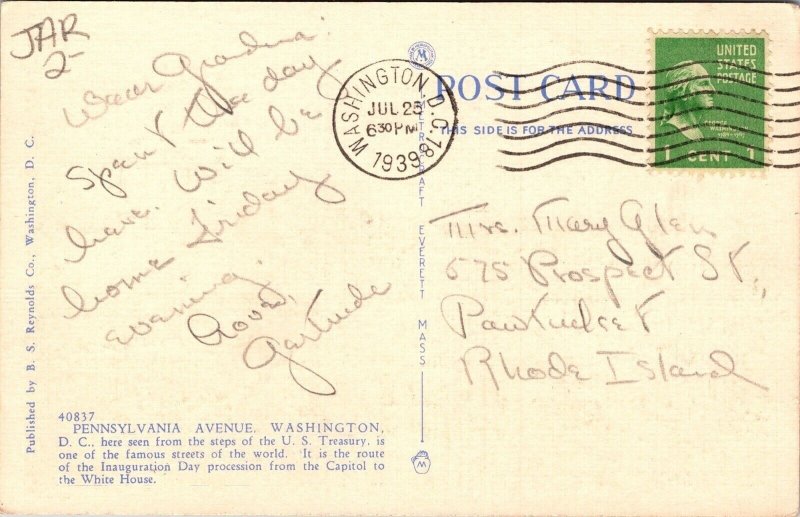 JAR
2-
Dear Grandma:
Spent the day
here. Will be
home Friday
evening.
Love,
Gertrude
POST CARD
THIS SIDE IS FOR THE ADDRESS
WASHINGTON, D.C. 18
JUL 25
6 30 PM
1939
UNITED
STATES
POSTAGE
GEORGE
WASHINGTON
1789-1797
1 CENT 1
Mrs. Mary Glen
575 Prospect St.,
Pawtucket
Rhode Island
METROCRAFT EVERETT MASS
Published by B. S. Reynolds Co., Washington, D. C.
40837
PENNSYLVANIA AVENUE, WASHINGTON,
D. C., here seen from the steps of the U. S. Treasury, is
one of the famous streets of the world. It is the route
of the Inauguration Day procession from the Capitol to
the White House.